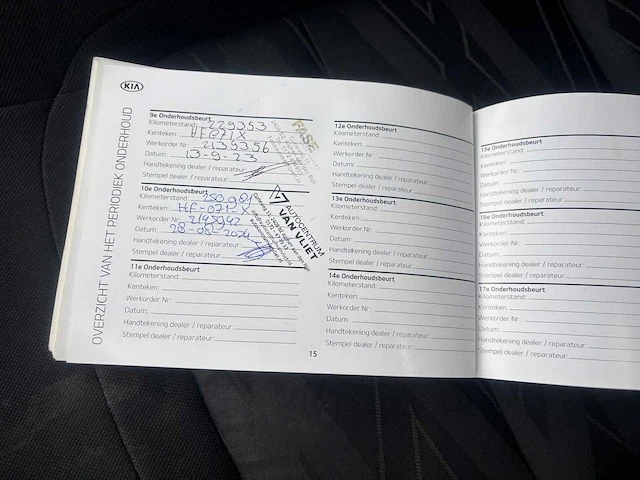 KIA
OVERZICHT VAN HET PERIODIEK ONDERHOUD
9e Onderhoudsbeurt
Kilometerstand: 229353
Kenteken: HF071X
Werkorder Nr: 2139356
Datum: 13-9-23
Handtekening dealer / reparateur:
Stempel dealer / reparateur:
10e Onderhoudsbeurt
Kilometerstand:
Kenteken: HF-071-X
Werkorder Nr: 2145942
Datum: 28-08-2024
Handtekening dealer / reparateur:
Stempel dealer / reparateur:
AUTOCENTRUM
VAN VLIET
11e Onderhoudsbeurt
Kilometerstand:
Kenteken:
Werkorder Nr:
Datum:
Handtekening dealer / reparateur:
Stempel dealer / reparateur:
12e Onderhoudsbeurt
Kilometerstand:
Kenteken:
Werkorder Nr:
Datum:
Handtekening dealer / reparateur:
Stempel dealer / reparateur:
13e Onderhoudsbeurt
Kilometerstand:
Kenteken:
Werkorder Nr:
Datum:
Handtekening dealer / reparateur:
Stempel dealer / reparateur:
14e Onderhoudsbeurt
Kilometerstand:
Kenteken:
Werkorder Nr:
Datum:
Handtekening dealer / reparateur:
Stempel dealer / reparateur:
15
15e Onderhoudsbeurt
Kilometerstand:
Kenteken:
Werkorder Nr:
Datum:
Handtekening dealer / reparateur:
Stempel dealer / reparateur:
16e Onderhoudsbeurt
Kilometerstand:
Kenteken:
Werkorder Nr:
Datum:
Handtekening dealer / reparateur:
Stempel dealer / reparateur:
17e Onderhoudsbeurt
Kilometerstand:
Kenteken:
Werkorder Nr:
Datum:
Handtekening dealer / reparateur:
Stempel dealer / reparateur: